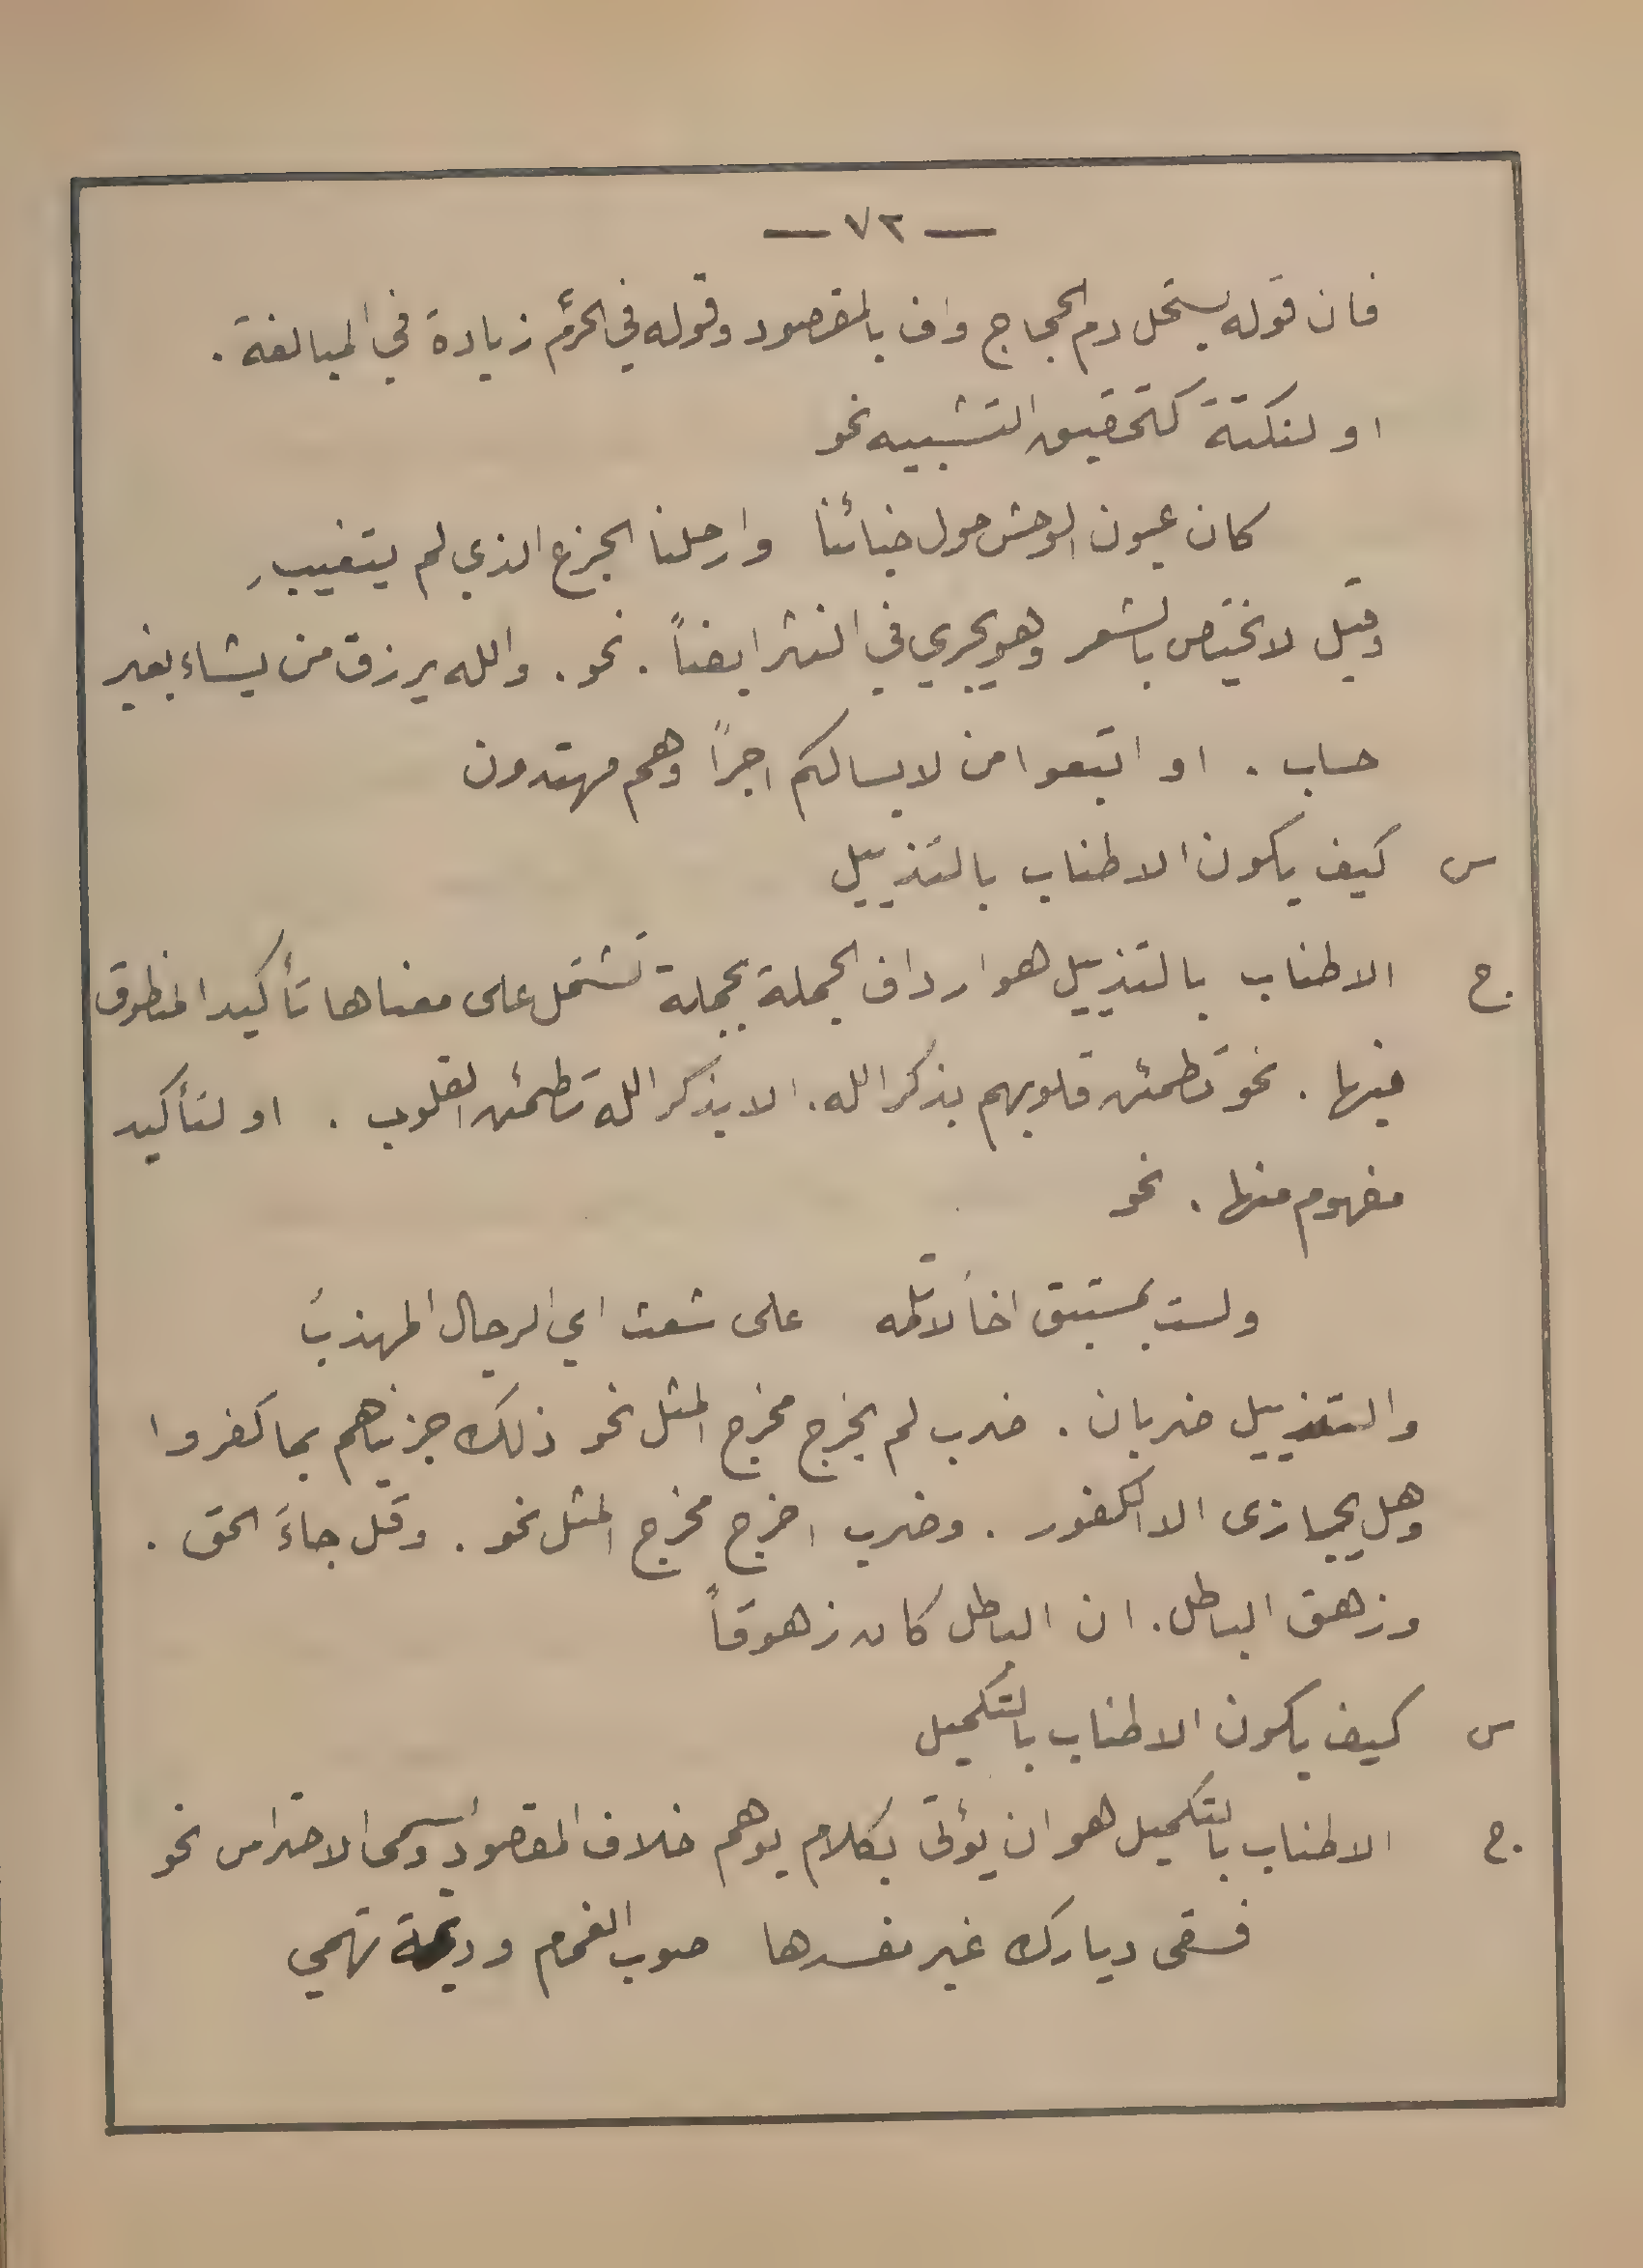 — ٧٢ —
فان قوله يستحل دم الحجاج واف بالمقصود وقوله في الحرم زيادة في المبالغة .
او لنكتة كتحقيق التشبيه نحو
كان عيون الوحش حول خبائنا وارحلنا الجزع الذي لم يتغيب
وقيل لا يختص بالشعر وهو يجري في النثر ايضاً . نحو . والله يرزق من يشاء بغير
حساب . او اتبعوا من لا يسالكم اجراً وهم مهتدون
س كيف يكون الاطناب بالتذييل
ج. الاطناب بالتذييل هو ارداف الجملة بجملة تشتمل على معناها تأكيدا لمنطوق
فيها . نحو تطمئن قلوبهم بذكر الله . الا بذكر الله تطمئن القلوب . او لتأكيد
مفهوم منها . نحو
ولست بمستبق اخاً لا تلمّه على شعث اي الرجال المهذبُ
والتذييل ضربان . ضرب لم يخرج مخرج المثل نحو ذلك جزيناهم بما كفروا
وهل يجازى الا الكفور . وضرب اخرج مخرج المثل نحو . وقل جاءَ الحق .
وزهق الباطل . ان الباطل كان زهوقاً
س كيف يكون الاطناب بالتكميل
ج. الاطناب بالتكميل هو ان يؤتى بكلام يوهم خلاف المقصود ويسمى الاحتراس نحو
فسقى ديارك غير مفسدها صوب الغمام وديمة تهمي